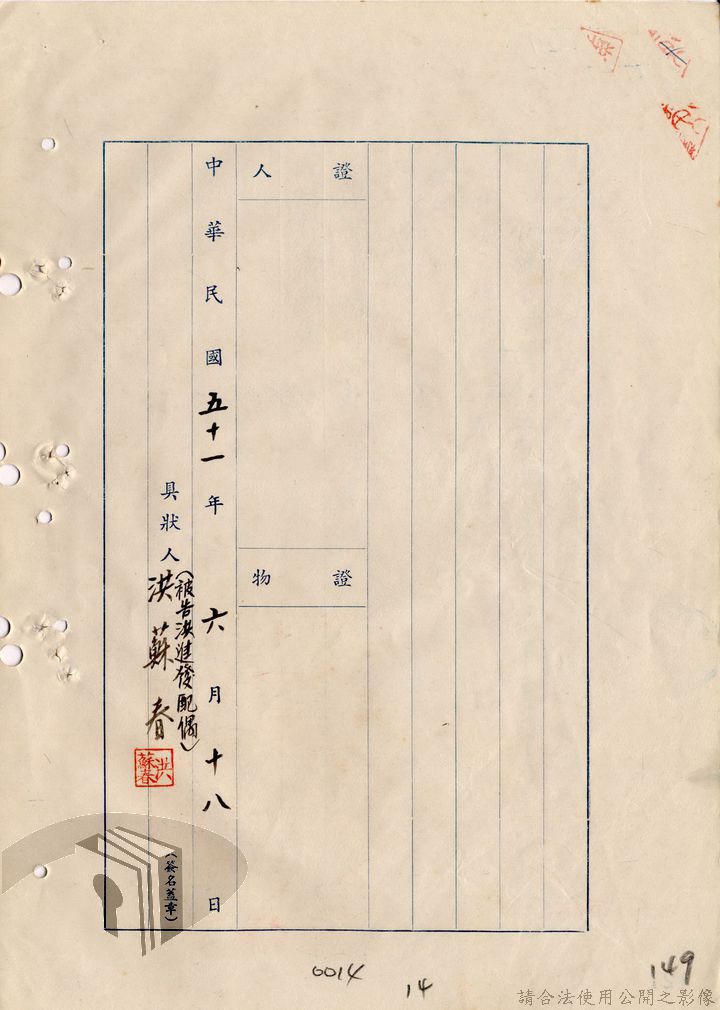 證人
證物
中華民國五十一年六月十八日
具狀人
(被告洪進發配偶)
洪蘇春
洪蘇春
簽名蓋章)
0014
14
149
請合法使用公開之影像